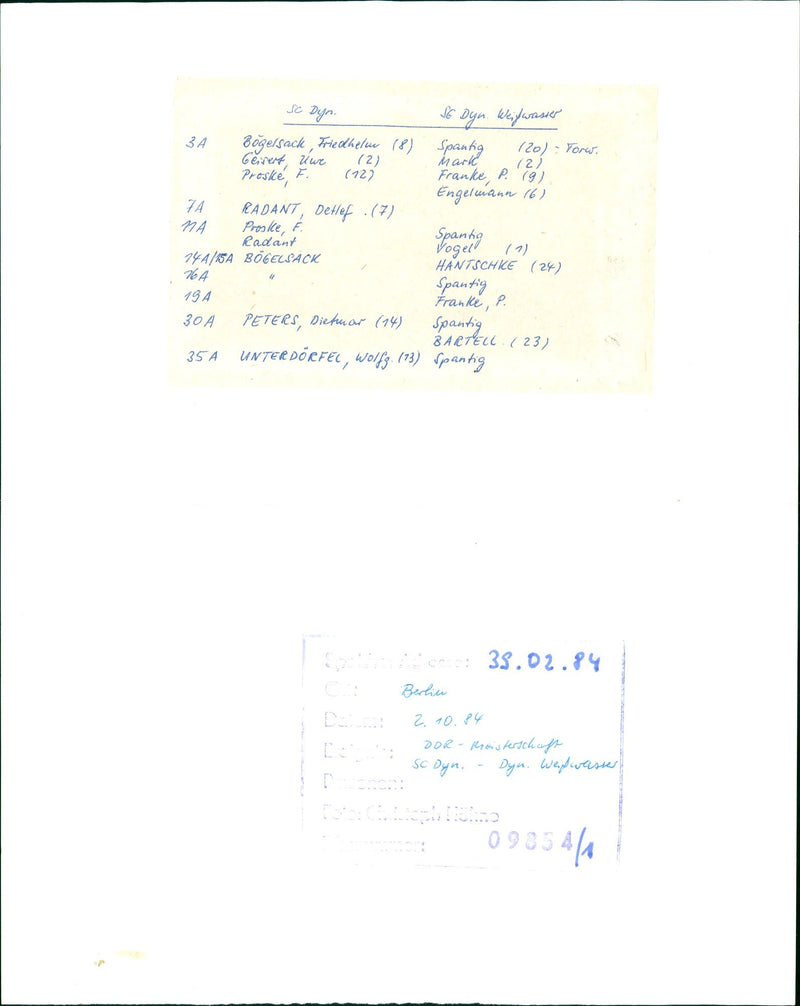 SC Dyn. SG Dyn. Weißwasser
3A Bögelsack, Friedhelm (8) Spantig (20) = Torw.
Geisert, Uwe (2) Mark (2)
Proske, F. (12) Franke, P. (9)
Engelmann (6)
7A RADANT, Detlef. (7)
11A Proske, F. Spantig
Radant Vogel (1)
14A/15A BÖGELSACK HANTSCHKE (24)
16A " Spantig
19A Franke, P.
30A PETERS, Dietmar (14) Spantig
BARTELL. (23)
35A UNTERDÖRFEL, Wolfg. (13) Spantig
39.02.84
Ort: Berlin
Datum: 2.10.84
DDR-Meisterschaft
SC Dyn. - Dyn. Weißwasser
Personen:
Foto: Christoph Höhne
09854/1